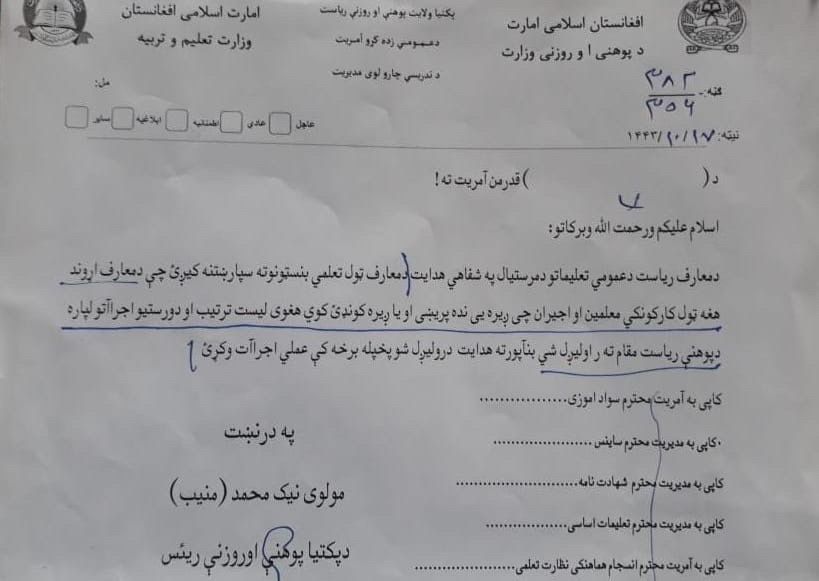 افغانستان اسلامی امارت
د پوهنې ا و روزنې وزارت
پکتیا ولایت پوهنې او روزنې ریاست
دعمومي زده کړو آمریت
د تدریسي چارو لوی مدیریت
امارت اسلامی افغانستان
وزارت تعلیم و تربیه
ګڼه:- ۳۸۲
۳۵۶
نیټه: ۱۴۴۳/۱۰/۱۷
مل:
عاجل عادی اطمنانیه ابلاغیه سایر
د( ) قدرمن آمریت ته !
اسلام علیکم ورحمت الله وبرکاتو:
دمعارف ریاست دعمومي تعلیماتو دمرستیال په شفاهي هدایت دمعارف ټول تعلمي بنسټونوته سپارښتنه کیږئ چې دمعارف اړوند
هغه ټول کارکونکي معلمین او اجیران چی ږیره یی نده پریښی او یا ږیره کوندئ کوي هغوی لیست ترتیب او دورستیو اجراآتو لپاره
دپوهنې ریاست مقام ته ر اولیږل شي بنآپورته هدایت درولیږل شو پخپله برخه کې عملي اجراآت وکړئ
کاپی به آمریت محترم سواد اموزی.................
کاپی به مدیریت محترم ساینس ....................
کاپی به مدیریت محترم شهادت نامه........................
کاپی به مدیریت محترم تعلیمات اساسی......................
کاپی به آمریت محترم انسجام هماهنکی نظارت تعلمی.....................
په درنښت
مولوی نیک محمد (منیب)
دپکتیا پوهنې اوروزنې ریئس